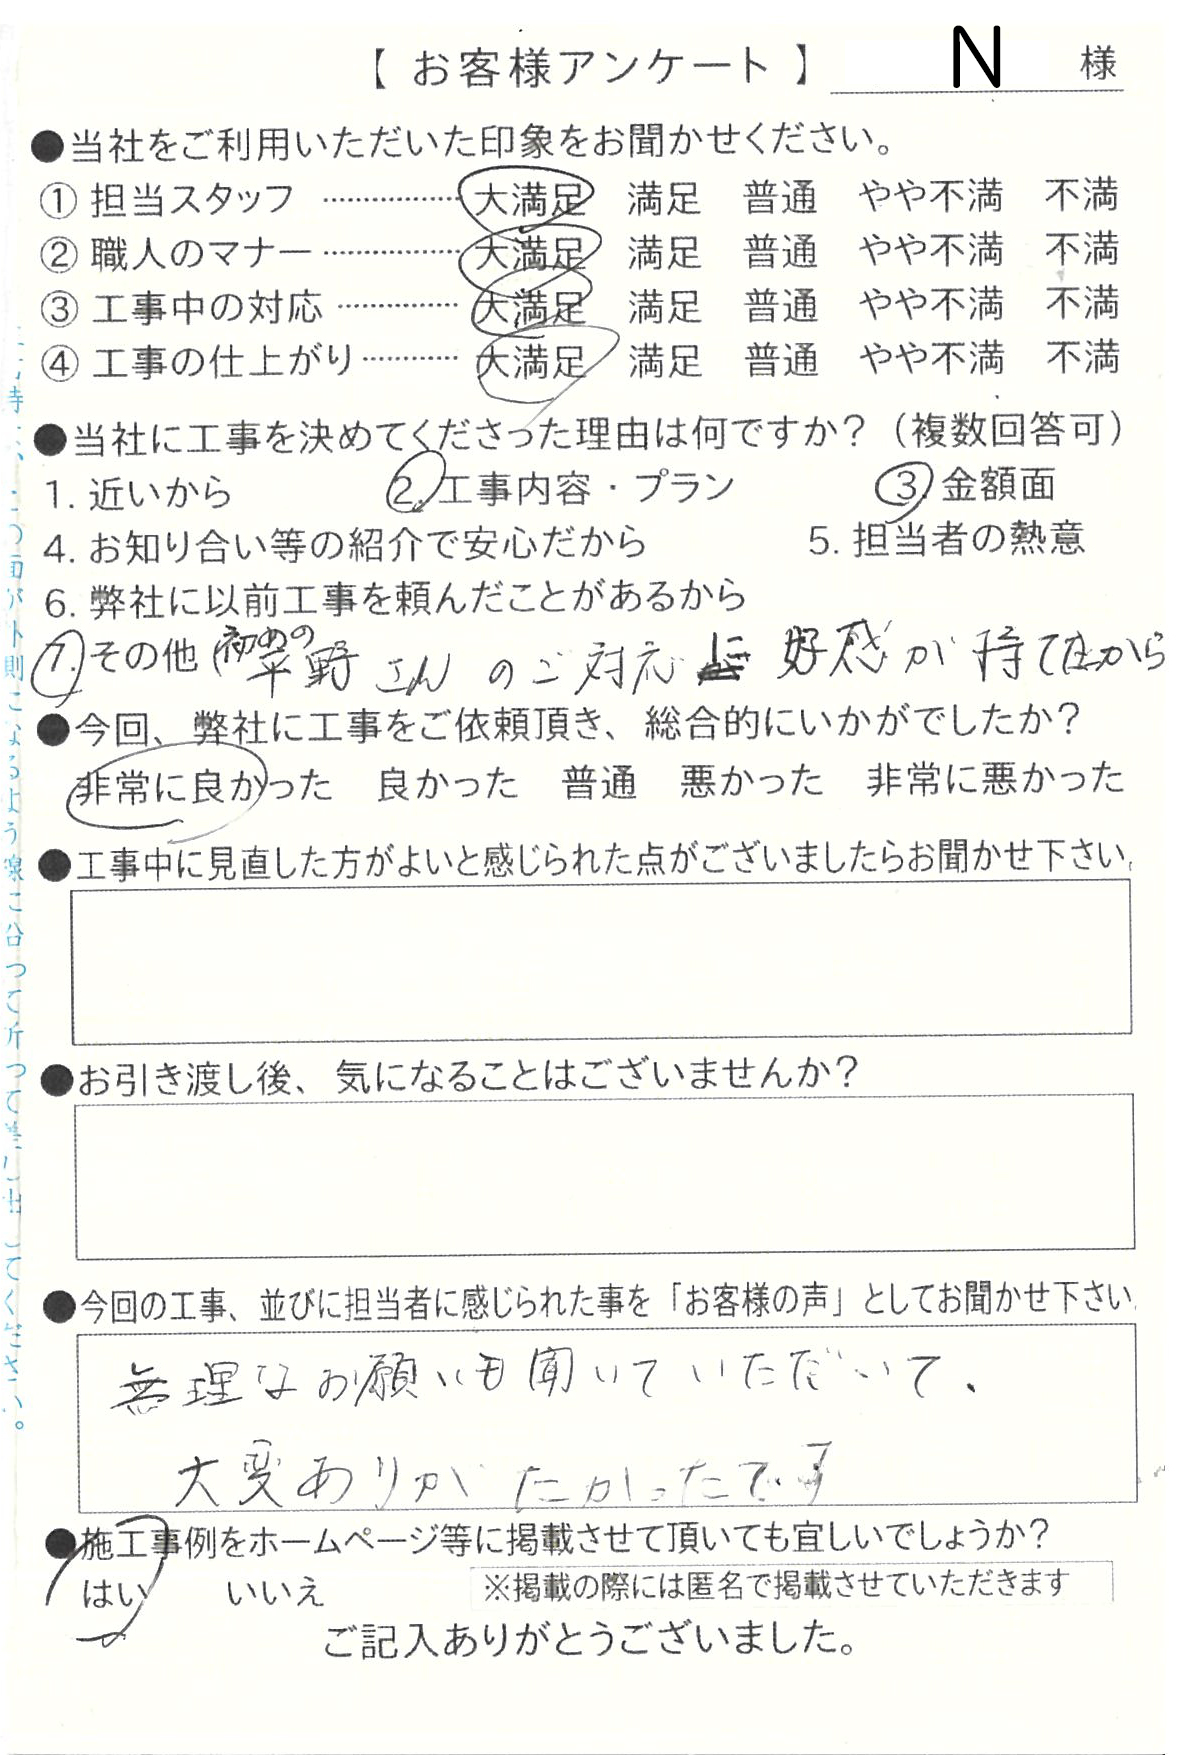 【 お客様アンケート 】 N 様
●当社をご利用いただいた印象をお聞かせください。
① 担当スタッフ ………… 大満足 満足 普通 やや不満 不満
② 職人のマナー ………… 大満足 満足 普通 やや不満 不満
③ 工事中の対応 ………… 大満足 満足 普通 やや不満 不満
④ 工事の仕上がり ………… 大満足 満足 普通 やや不満 不満
●当社に工事を決めてくださった理由は何ですか？（複数回答可）
1. 近いから 2. 工事内容・プラン 3. 金額面
4. お知り合い等の紹介で安心だから 5. 担当者の熱意
6. 弊社に以前工事を頼んだことがあるから
7. その他（初めの平野さんのご対応に好感が持てたから
●今回、弊社に工事をご依頼頂き、総合的にいかがでしたか？
非常に良かった 良かった 普通 悪かった 非常に悪かった
●工事中に見直した方がよいと感じられた点がございましたらお聞かせ下さい。
●お引き渡し後、気になることはございませんか？
●今回の工事、並びに担当者に感じられた事を「お客様の声」としてお聞かせ下さい
無理なお願いも聞いていただいて、
大変ありがたかったです
●施工事例をホームページ等に掲載させて頂いても宜しいでしょうか？
はい いいえ ※掲載の際には匿名で掲載させていただきます
ご記入ありがとうございました。